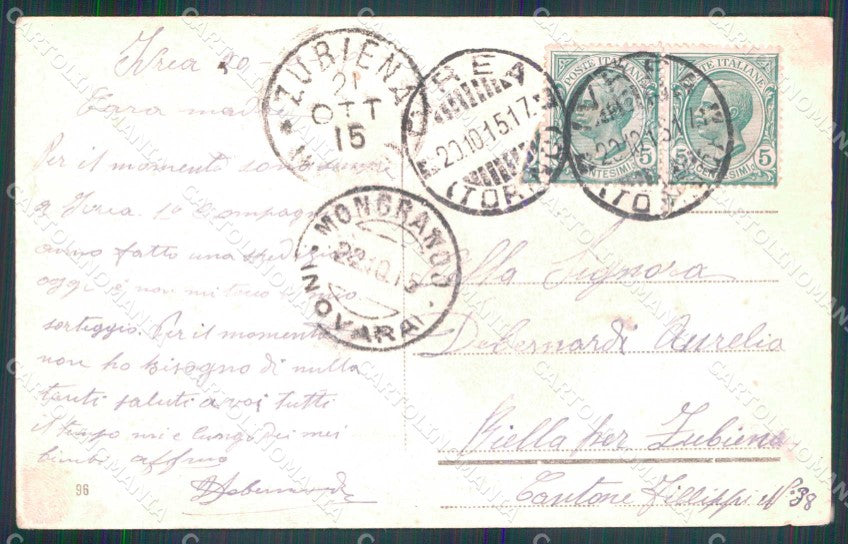 Ivrea 20-
Cara
Per il momento sono
a Ivrea. 1a Compag
anno fatto una
oggi e non mi
sorteggio. Per il momento
non ho bisogno di nulla
tanti saluti a voi tutti
il mi e lungo dei miei
bimbi affmo
Debernardi
96
ZUBIENA
21
OTT
15
IVREA
20.10.15.17
(TORINO)
IVREA
20.10.15
(TO
MONGRANDO
22.10.15
(NOVARA)
POSTE ITALIANE
5
CENTESIMI
POSTE ITALIANE
5 CENTESIMI 5
Alla Signora
Debernardi Aurelia
Biella per Zubiena
Cantone Fillippi No 38
CARTOLINOMANIA